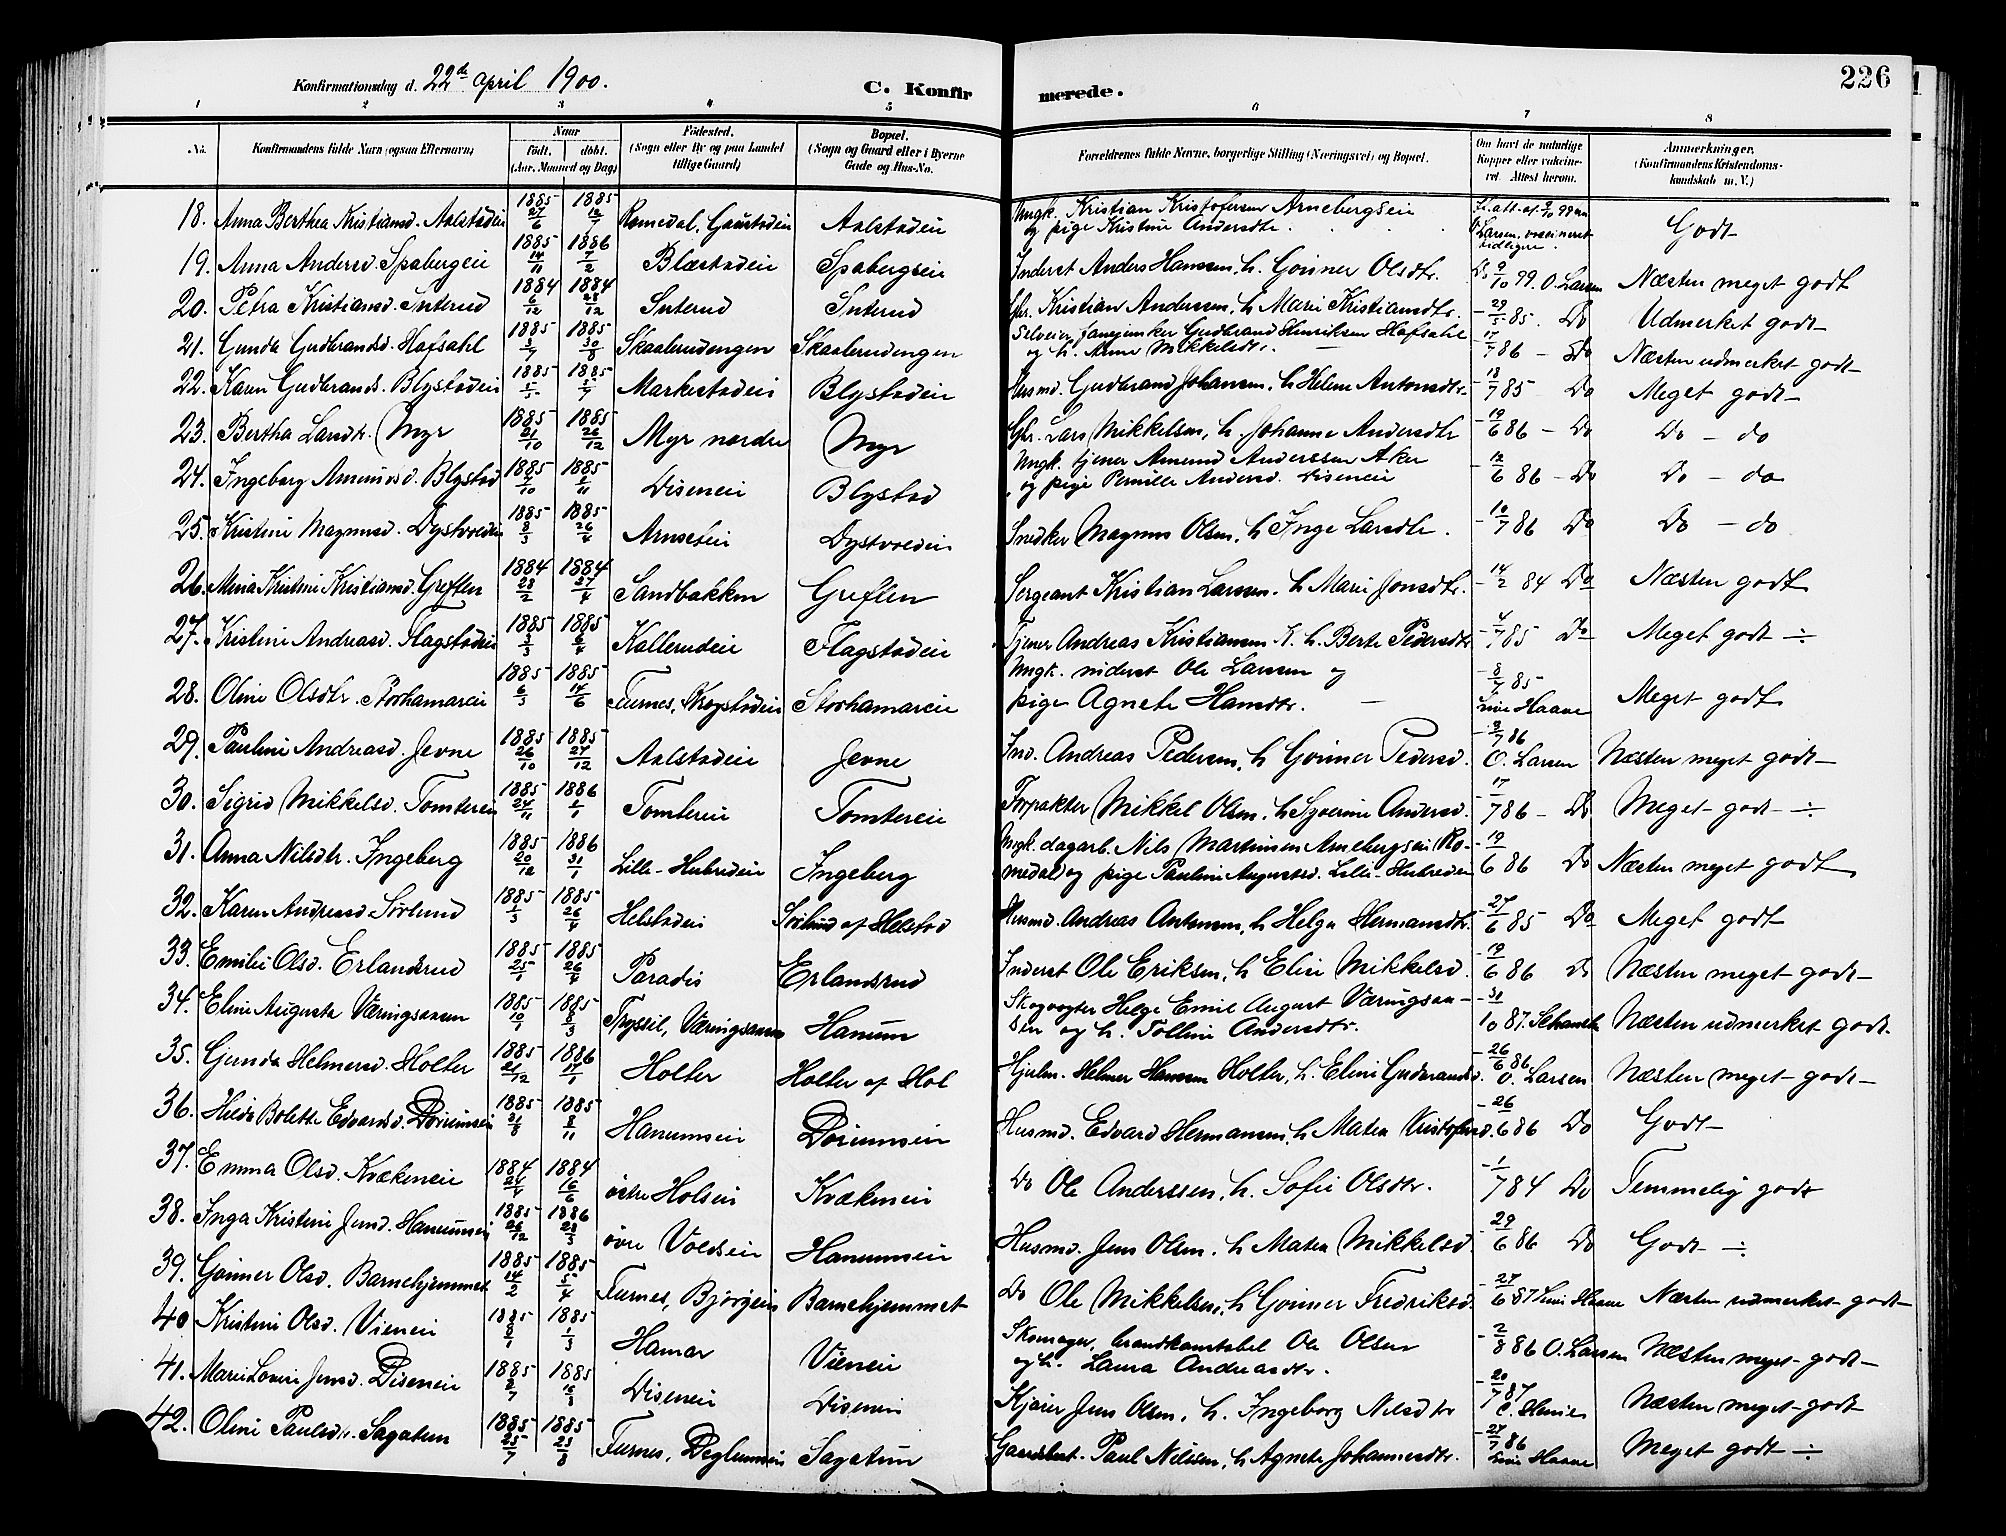 226
Konfirmationsdag d. 22de april 1900.
C. Konfirmerede.
1 2 3 4 5 6 7 8
No.
Konfirmandens fulde Navn (ogsaa Efternavn)
Naar
födt. döbt.
(Aar, Maaned og Dag)
Födested.
(Sogn eller By og paa Landet
tillige Gaard)
Bopæl.
(Sogn og Gaard eller i Byerne
Gade og Hus-No.
Forældrenes fulde Navne, borgerlige Stilling (Næringsvei) og Bopæl.
Om havt de naturlige
Kopper eller vakcine-
ret. Attest herom.
Anmerkninger.
(Konfirmandens Kristendoms-
kundskab m. V.)
18. Anna Berthea Kristiansd. Aalstadeie 1885 27/6 1885 12/7 Romedal, Gaustadeie Aalstadeie Ungk. Kristian Kristofersen Arnebergseie og pige Kristine Andersdtr. Larsen, vaccineret tidligere. Godt
19. Anna Andersd. Spabergeie 1885 14/11 1886 7/2 Blæstadeie Spabergeie Inderst Anders Hansen, h. Gonner Olsdtr. Do 9/10 99. O. Larsen Næsten meget godt
20. Petra Kristiansd. Snterud 1884 6/12 1884 28/12 Snterud Snterud Gbr. Kristian Andersen, h. Marie Kristiansdtr. - 29/5 85. Do Udmerket godt
21. Gunda Gudbransd. Hafsahl 1885 8/7 1885 30/8 Skaalerudengen Skaalerudengen Gudbrand Henriksen Hafsahl og h. Anne Mikkelsdtr. 17/7 86 - Do Næsten udmerket godt
22. Karen Gudbrands. Blystadeie 1885 1885 Markestadeie Blystadeie Husmd. Gudbrand Johansen, h. Helene Antonsdtr. - 18/7 85 Do Meget godt
23. Bertha Larsdtr. Myr 1885 21/10 1885 26/12 Myr nordre Myr Gbr. Lars Mikkelsen, h. Johanne Andersdtr 19/6 86 - Do Do - do
24. Ingeborg Amundsd. Blystad 1885 1885 Diseneie Blystad Ungk. tjener Amund Anderssen Aker og pige Pernille Andersd. Diseneie - 12/6 86 - Do Do - do
25. Kristine Magnusd. Dystvoldeie 1885 8/3 1885 26/4 Arnseteie Dystvoldeie Snedker Magnus Olsen, h Inge Larsdtr. - 10/7 86 Do Do - do
26. Mina Kristine Kristiansd. Greften 1884 28/2 1884 27/4 Sandbakken Greften Sergeant Kristian Larsen. h Marie Jonsdtr. - 14/2 84 Do Næsten godt
27. Kristine Andreasd. Flagstadeie 1885 3/3 1885 6/4 Kallerudeie Flagstadeie Tjener Andreas Kristiansen K. h. Berte Pedersdtr - 4/7 85 Do Meget godt ÷
28. Oline Olsdtr. Storhamareie 1885 6/3 1885 14/6 Furnes, Skogstadeie Storhamareie Ungk. inderst Ole Larsen og pige Agnete Hansdtr. - 8/7 85 Sine Haave Meget godt
29. Pauline Andreasd. Jevne 1885 26/10 1885 27/12 Aalstadeie Jevne Ind. Andreas Pedersen, h Gonner Pedersd. - 9/7 86 O. Larsen Næsten meget godt
30. Sigrid Mikkelsd. Tomtereie 1885 24/11 1886 1/1 Tomtereie Tomtereie Forpakter Mikkel Olsen, h Syverine Andersd. 17/7 86 - Do Meget godt ÷
31. Anna Nilsdtr. Ingeberg 1885 20/12 1886 31/1 Lille-Hubredeie Ingeberg Ungk. dagarb. Nils Martinsen Arnebergseie Romedal og pige Pauline Augustsd. Lille-Hubredeie - 19/6 86 Do Næsten meget godt
32. Karen Andreasd Sörlund 1885 1/3 1885 26/4 Helstadeie Sörlund af Helstad Husmd. Andreas Antonsen, h Helga Hermansdtr. - 27/6 85 Do Meget godt
33. Emilie Olsd. Erlandsrud 1885 25/1 1885 26/4 Paradis Erlandsrud Inderst Ole Eriksen, h Elise Mikkelsd. 19/6 86 Do Næsten meget godt
34. Eline Augusta Væringsaasen 1885 10/1 1885 8/3 Tryssil, Væringsaasen Hanum Skogvogter Helge Emil August Væringsaasen og h. Polline Andersdtr. - 31/10 87. Næsten udmerket godt.
35. Gunda Helmersd. Holter 1885 21/12 1886 17/1 Holter Holter af Hol Hjulm. Helmer Hansen Holter, h. Eline Gudbrandsd. - 26/6 86 O. Larsen Næsten meget godt
36. Hilda Bolette Edvardsd. Dörumseie 1885 31/8 1885 8/11 Hanumseie Dörumseie Husmd. Edvard Hermansen, h Matea Kristofersd. - 26/6 86 Do Godt
37. Emma Olsd. Kvækeneie 1884 24/4 1884 16/6 östre Holseie Kvækeneie Do Ole Anderssen, h. Sofie Olsdtr. - 1/7 84 Do Temmelig godt
38. Inga Kristine Jensd. Hanumseie 1885 26/12 1886 28/3 övre Voldseie Hanumseie Husmd. Jens Olsen, h Matea Mikkelsd. 29/6 86 Do Godt ÷
39. Gonner Olsd. Barnehjemmet 1885 14/2 1885 5/4 Furnes, Björgeie Barnehjemmet Do Ole Mikkelsen, h Gonner Fredriksd. - 27/6 87 Sine Haave Næsten udmerket godt
40 Kristine Olsd. Vieneie 1885 8/1 1885 1/3 Hamar Vieneie Skomager, brandkonstabel Ole Olsen og h. Laura Andreasdtr. - 2/8 86 O. Larsen Næsten meget godt
41. Marie Lovise Jensd. Diseneie 1885 8/7 1885 16/8 Diseneie Diseneie Kjörer Jens Olsen, h. Ingeborg Nilsdtr - 20/7 87 Næsten meget godt
42. Oline Paulsdtr. Sagatun 1885 25/7 1885 23/8 Furnes, Deglumseie Sagatun Paul Nilsen, h Agnete Johannesdtr. - 27/7 86 Sine Haave Meget godt ÷